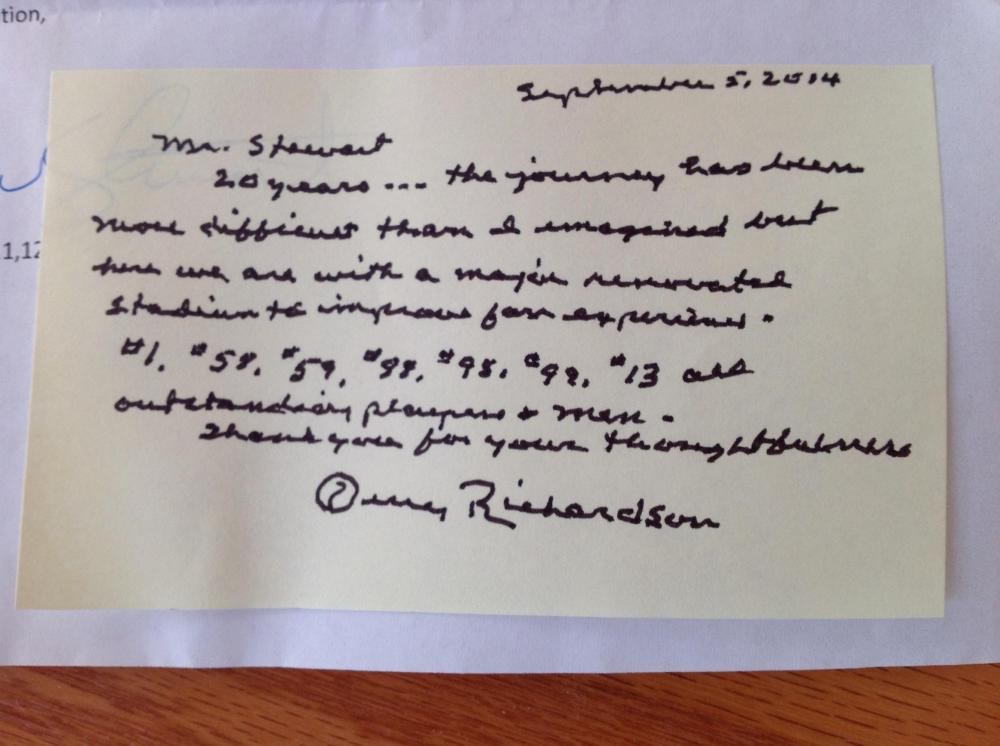 tion,
September 5, 2014
Mr. Stewart
20 years... the journey has been
more difficult than I imagined but
here we are with a major renovated
Stadium to improve fan experience.
#1, #58, #59, #99, #98, #92, #13 all
outstanding players & men.
Thank you for your thoughtfulness
Jerry Richardson
1,12